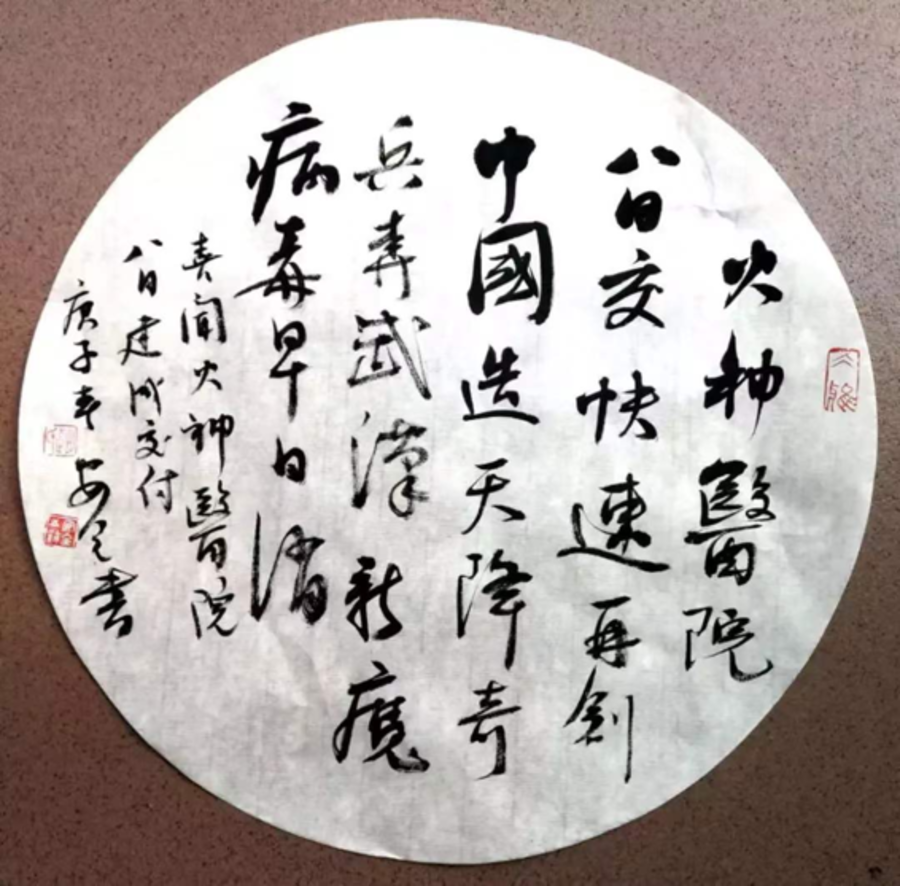 火神醫院
八日交快速再創
中國造天降奇
兵奔武漢新魔
病毒早日消
喜聞火神醫院
八日建成交付
庚子春
書